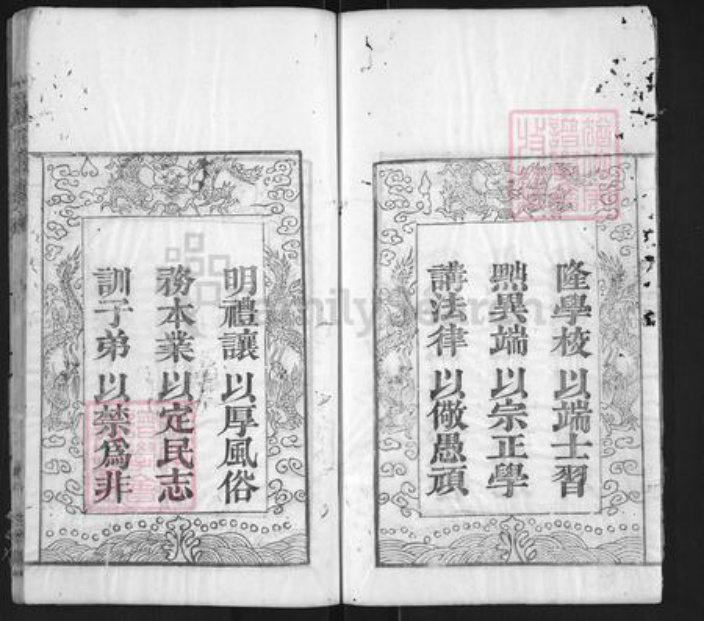 隆學校 以端士習
黜異端 以宗正學
講法律 以儆愚頑
明禮讓 以厚風俗
務本業 以定民志
訓子弟 以禁為非